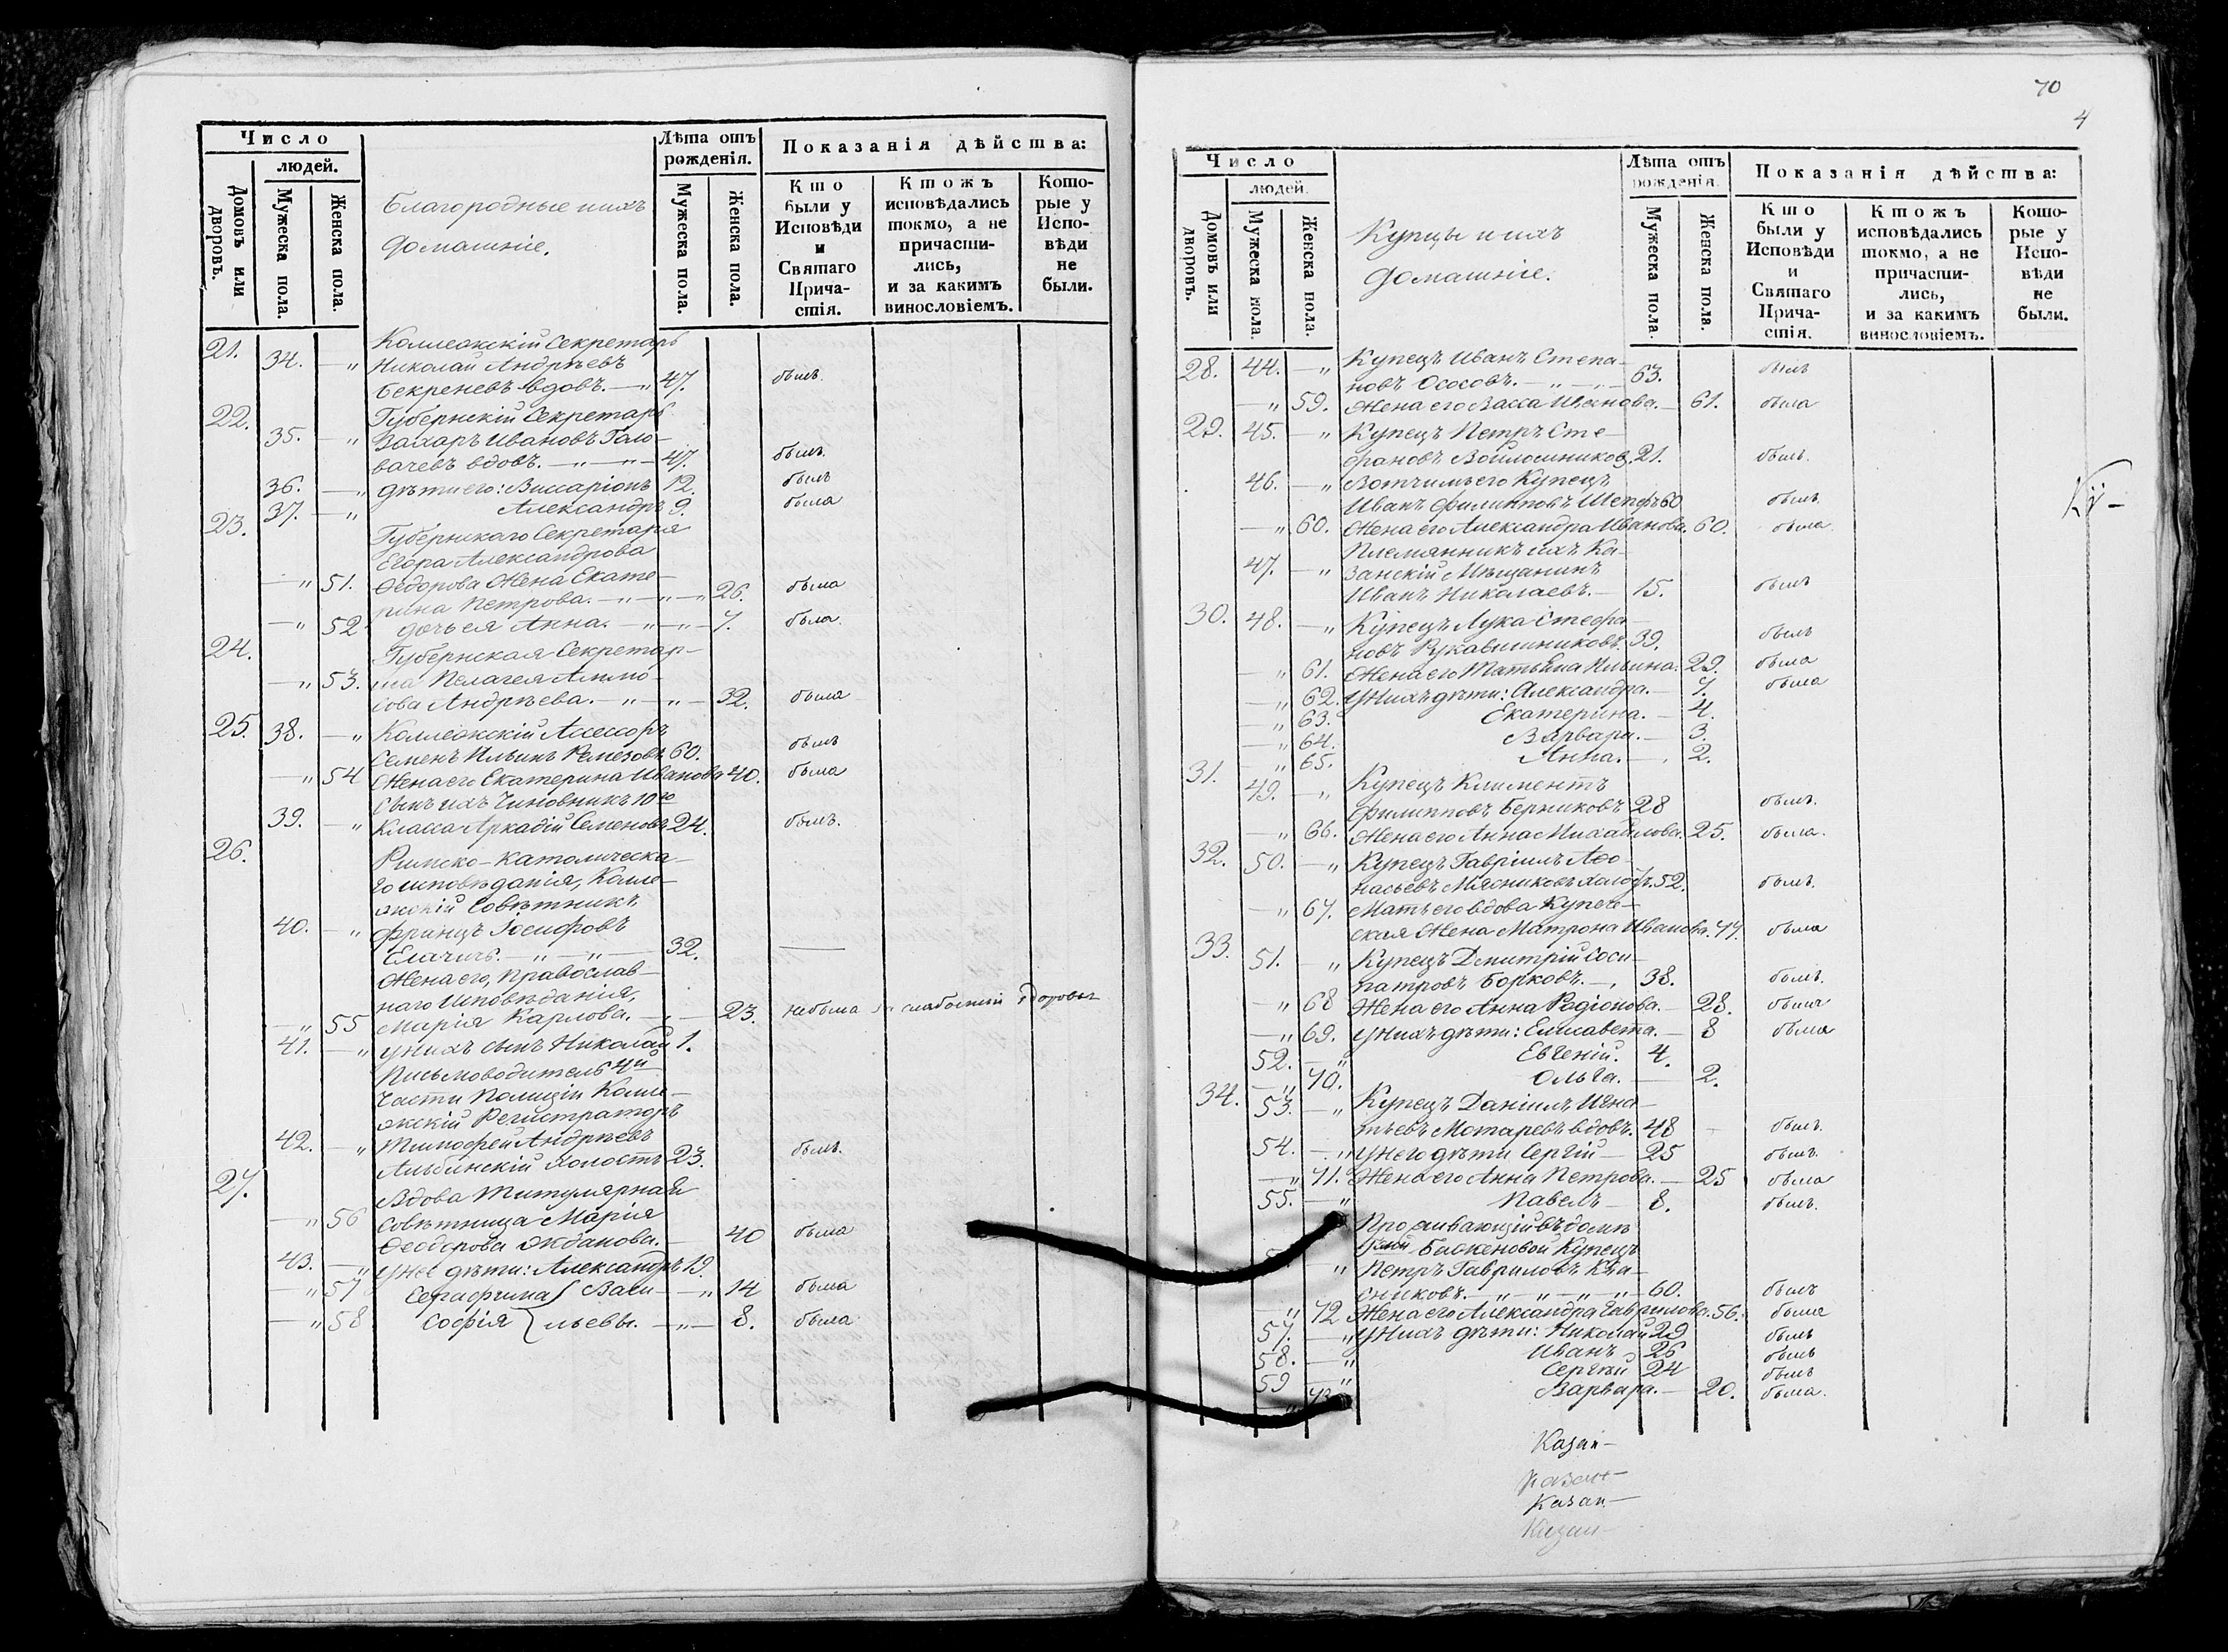 Число
людей.
Домовъ или дворовъ.
Мужеска пола.
Женска пола.
Благородные ихъ
домашніе.
Лѣта отъ
рожденія.
Мужеска пола.
Женска пола.
Показанія дѣйства:
Кто
были у
Исповѣди
и
Святаго
Прича-
стія.
Ктожъ
исповѣдались
токмо, а не
причасти-
лись,
и за какимъ
винословіемъ.
Кото-
рые у
Испо-
вѣди
не
были.
21. Коллежскій Секретарь
34. — „ Николай Андрѣевъ
Бекреневъ вдовъ. — „ 47. былъ.
22. Губернскій Секретарь
35. — „ Захаръ Ивановъ Голо-
вачевъ вдовъ. — „ — „ — 47. былъ.
36. — „ дѣти его: Виссаріонъ 12. былъ
37. — „ Александръ 9. была
23. Губернскаго Секретаря
Егора Александрова
— „ 51. Ѳедорова Жена Екате-
рина Петрова. — „ — „ — „ 26. была
— „ 52 дочь ея Анна. — „ — „ — 7. была.
24. Губернская Секретар-
— „ 53. ша Пелагея
Андрѣева. — „ — „ — 32. была
25. 38. — „ Коллежскій Ассессоръ
Семенъ Ильинъ Ремезовъ 60. былъ
— „ 54 Жена его Екатерина Иванова 40. была
Сынъ ихъ Чиновникъ 10го
39. — „ Класса Аркадій Семеновъ 24. былъ.
26. Римско-католическа-
го исповѣданія, Колле-
жскій Совѣтникъ
40. — „ Францъ Іосифовъ
Елачичъ. — „ — „ — 32. ———
Жена его, православ-
наго исповѣданія,
— „ 55 Марія Карлова. — „ — 23. небыла по слабости здоровья
41. — „ у нихъ сынъ Николай 1.
Письмоводитель 4й
части Полиціи Колле-
жскій Регистраторъ
42. — „ Тимофей Андрѣевъ
Альбинскій холостъ 23. былъ.
27. Вдова Титулярная
— „ 56 Совѣтница Марія
Ѳеодорова Жданова. — 40 была
43. — „ у нее дѣти: Александръ 19.
— „ 57 Серафима } Васи- — „ 14 была
— „ 58 Софія } льевы. — „ — 8. была
70
4
Число
людей.
Домовъ или дворовъ.
Мужеска пола.
Женска пола.
Купцы и ихъ
домашніе.
Лѣта отъ
рожденія.
Мужеска пола.
Женска пола.
Показанія дѣйства:
Кто
были у
Исповѣди
и
Святаго
Прича-
стія.
Ктожъ
исповѣдались
токмо, а не
причасти-
лись,
и за какимъ
винословіемъ.
Кото-
рые у
Испо-
вѣди
не
были.
28. 44. — „ Купецъ Иванъ Степа-
новъ Ососовъ. — „ — „ — 63. былъ
— „ 59. Жена его Васса Иванова. — 61. была
29. 45. — „ Купецъ Петръ Сте-
фановъ Войлошниковъ. 21. былъ.
46. — „ Вотчимъ его Купецъ
Иванъ Филипповъ 60 былъ
— „ 60. Жена его Александра Иванова. 60. была
Племянникъ ихъ Ка-
47. — „ занскій Мѣщанинъ
Иванъ Николаевъ. — 15. былъ
30. 48. — „ Купецъ Лука Стефа-
новъ Рукавишниковъ. 39. былъ
— „ 61. Жена его Татьяна Ильина. 29. была
— „ 62. У нихъ дѣти: Александра. — 7. была
— „ 63. Екатерина. — 4.
— „ 64. Варвара. — 3.
— „ 65. Анна. — 2.
31. 49. — „ Купецъ Климентъ
Филипповъ Берниковъ 28 былъ.
— „ 66. Жена его Анна Михайлова. 25. была.
32. 50. — „ Купецъ Гавріилъ Аѳо-
насьевъ Мясниковъ холостъ. 52. былъ.
— „ 67. Мать его вдова Купече-
ская Жена Матрона Иванова. 77. была
33. 51. — „ Купецъ Дмитрій Соси-
патровъ Борковъ. — „ 38. былъ.
— „ 68 Жена его Анна Радіонова. — 28. была
— „ 69. У нихъ дѣти: Елисавета. — 8 была
52. — „ Евгеній. 4.
— „ 70. Ольга. — 2.
34. 53. — „ Купецъ Даніилъ Игна-
тьевъ Мотаревъ вдовъ. 48 былъ.
54. — „ У него дѣти Сергій — 25 былъ.
— „ 71. Жена его Анна Петрова. — 25 была
55. — „ Павелъ — 8. былъ.
Проживающій въ домѣ
Баженовой Купецъ
„ Петръ Гавриловъ Ква-
сниковъ. — „ — „ — „ — „ — 60. былъ
— „ 72 Жена его Александра Гаврилова. 56. была
57. — „ У нихъ дѣти: Николай 29 былъ
58. — „ Иванъ 26 былъ
59 — „ Сергѣй 24 былъ
— „ 73. Варвара. — 20. была.
Казан-
Казан-
Казан-
Казан-